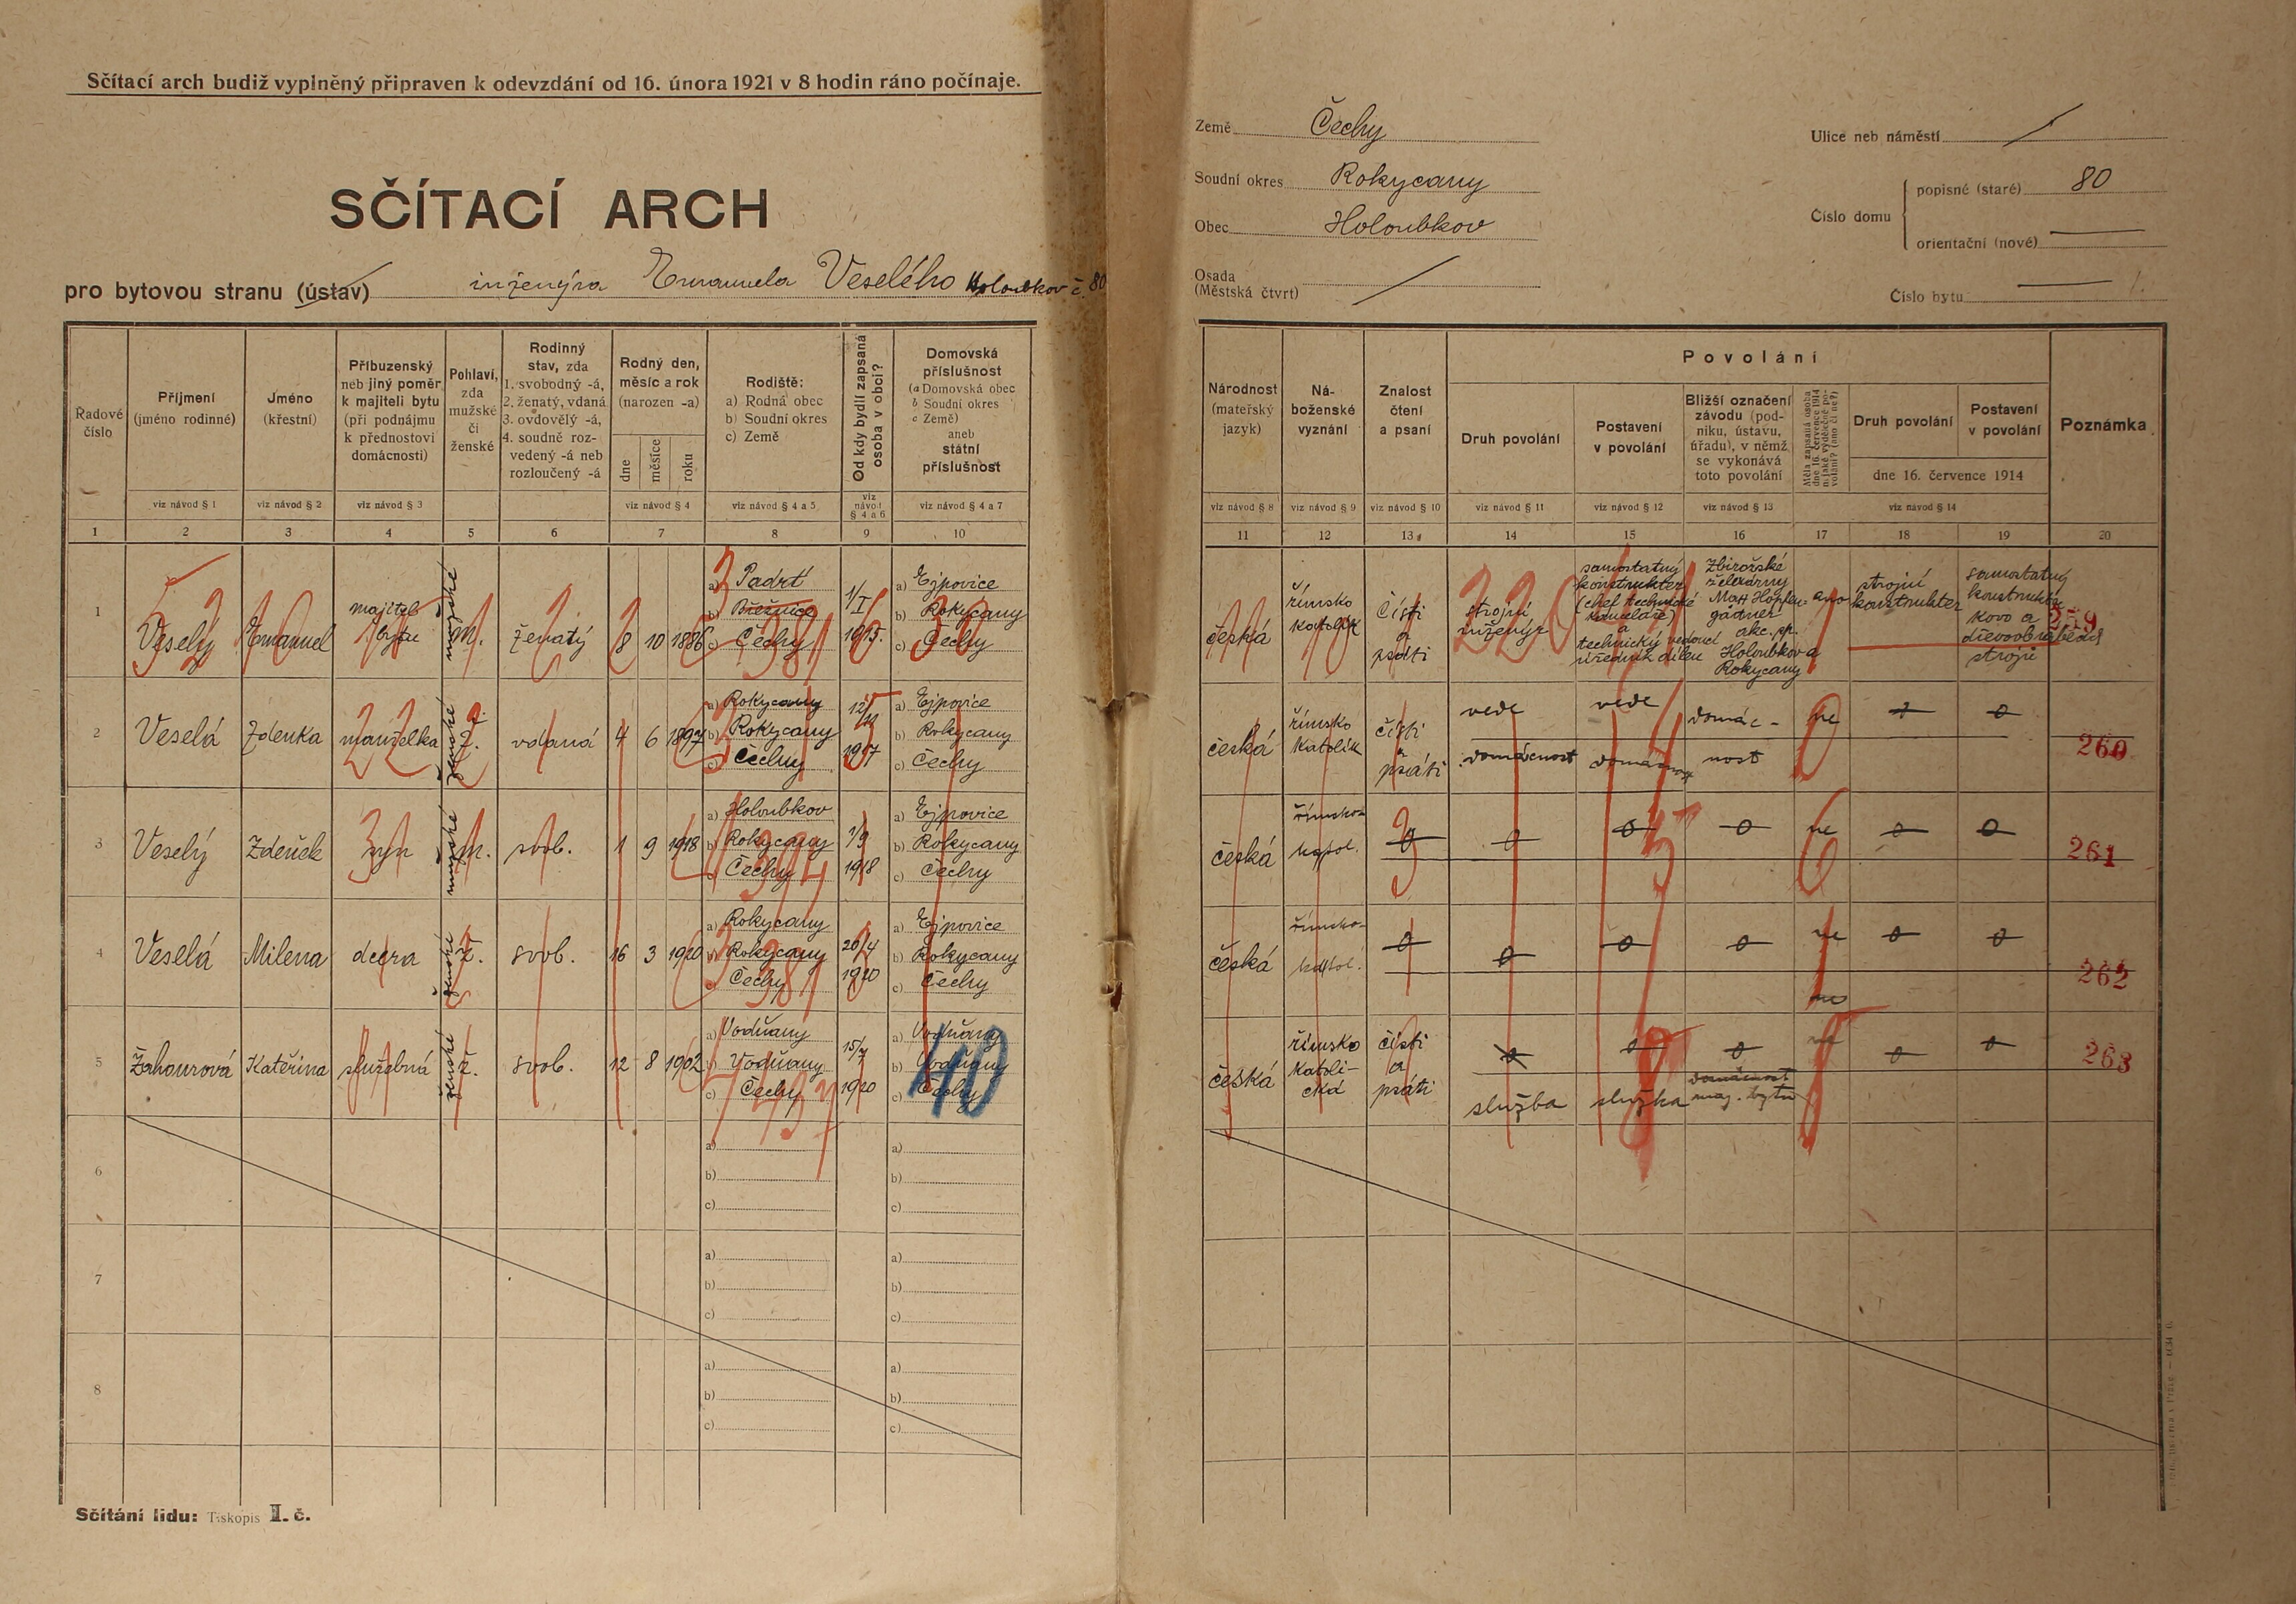 Sčítací arch budiž vyplněný připraven k odevzdání od 16. února 1921 v 8 hodin ráno počínaje.
SČÍTACÍ ARCH
pro bytovou stranu (ústav) inženýra Emanuela Veselého Holoubkov č. 80
Země Čechy
Soudní okres Rokycany
Obec Holoubkov
Osada
(Městská čtvrt)
Ulice neb náměstí
Číslo domu
popisné (staré) 80
orientační (nové)
Číslo bytu 1.
Řadové číslo
Příjmení (jméno rodinné)
Jméno (křestní)
Příbuzenský neb jiný poměr k majiteli bytu (při podnájmu k přednostovi domácnosti)
Pohlaví, zda mužské či ženské
Rodinný stav, zda 1. svobodný -á, 2. ženatý, vdaná 3. ovdovělý -á, 4. soudně rozvedený -á neb rozloučený -á
Rodný den, měsíc a rok (narozen -a)
dne měsíce roku
Rodiště: a) Rodná obec b) Soudní okres c) Země
Od kdy bydlí zapsaná osoba v obci?
Domovská příslušnost (a Domovská obec b Soudní okres c Země) aneb státní příslušnost
viz návod § 1 viz návod § 2 viz návod § 3 viz návod § 4 viz návod § 4 a 5 viz návod § 4 a 6 viz návod § 4 a 7
1 2 3 4 5 6 7 8 9 10
1 Veselý Emanuel majitel bytu mužské m. ženatý 8 10 1886
a) Padrť
b) Březnice
c) Čechy
1/I 1915.
a) Ejpovice
b) Rokycany
c) Čechy
2 Veselá Zdenka manželka ženské ž. vdaná 4 6 1897
a) Rokycany
b) Rokycany
c) Čechy
1917
a) Ejpovice
b) Rokycany
c) Čechy
3 Veselý Zdeněk syn mužské m. svob. 1 9 1918
a) Holoubkov
b) Rokycany
c) Čechy
1/9 1918
a) Ejpovice
b) Rokycany
c) Čechy
4 Veselá Milena dcera ženské ž. svob. 16 3 1920
a) Rokycany
b) Rokycany
c) Čechy
20/4 1920
a) Ejpovice
b) Rokycany
c) Čechy
5 Žahourová Kateřina služebná ženské ž. svob. 12 8 1902
a) Vodňany
b) Vodňany
c) Čechy
15/7 1920
a) Vodňany
b) Vodňany
c) Čechy
40
6
a)
b)
c)
a)
b)
c)
7
a)
b)
c)
a)
b)
c)
8
a)
b)
c)
a)
b)
c)
Sčítání lidu: Tiskopis I. č.
Národnost (mateřský jazyk)
Náboženské vyznání
Znalost čtení a psaní
Povolání
Druh povolání
Postavení v povolání
Bližší označení závodu (podniku, ústavu, úřadu), v němž se vykonává toto povolání
Měla zapsaná osoba dne 16. července 1914 nějaké výdělečné povolání? (ano či ne?)
Druh povolání
Postavení v povolání
dne 16. července 1914
Poznámka
viz návod § 8 viz návod § 9 viz návod § 10 viz návod § 11 viz návod § 12 viz návod § 13 viz návod § 14
11 12 13 14 15 16 17 18 19 20
česká
římsko katolík
čísti a psáti
strojní inženýr
samostatný konstruktér (chef technické kanceláře) a technický úředník vedoucí dílen
Zbirožské železárny Max Hopfengärtner akc. sp. Holoubkov a Rokycany
ano
strojní konstruktér
samostatný konstruktér kovo a dřevoobráběcí stroje
259
česká
římsko katolík
čísti a psáti
vede domácnost
vede domácnost
domácnost
ne
0
0
260
česká
římsko-katol.
0 0 0 0
ne
0 0
261
česká
římsko-katol.
0 0 0 0
ne
0 0
262
česká
římsko katolická
čísti a psáti
0
služba
0
služka
0
domácnost maj. bytu
ne
0 0
263